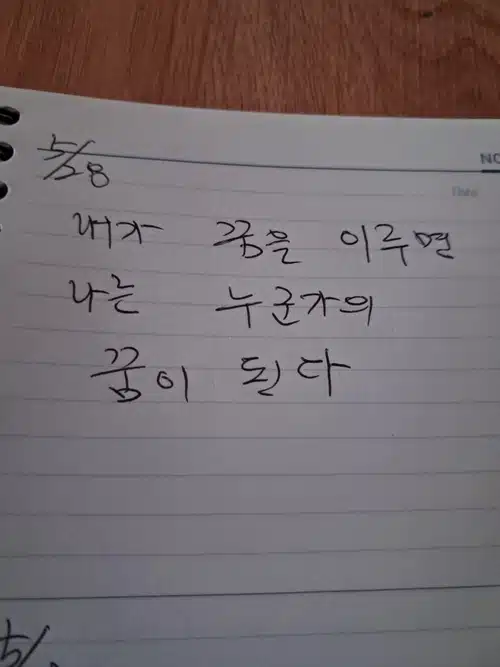 NO
Date
5/28
내가 꿈을 이루면
나는 누군가의
꿈이 된다
5/